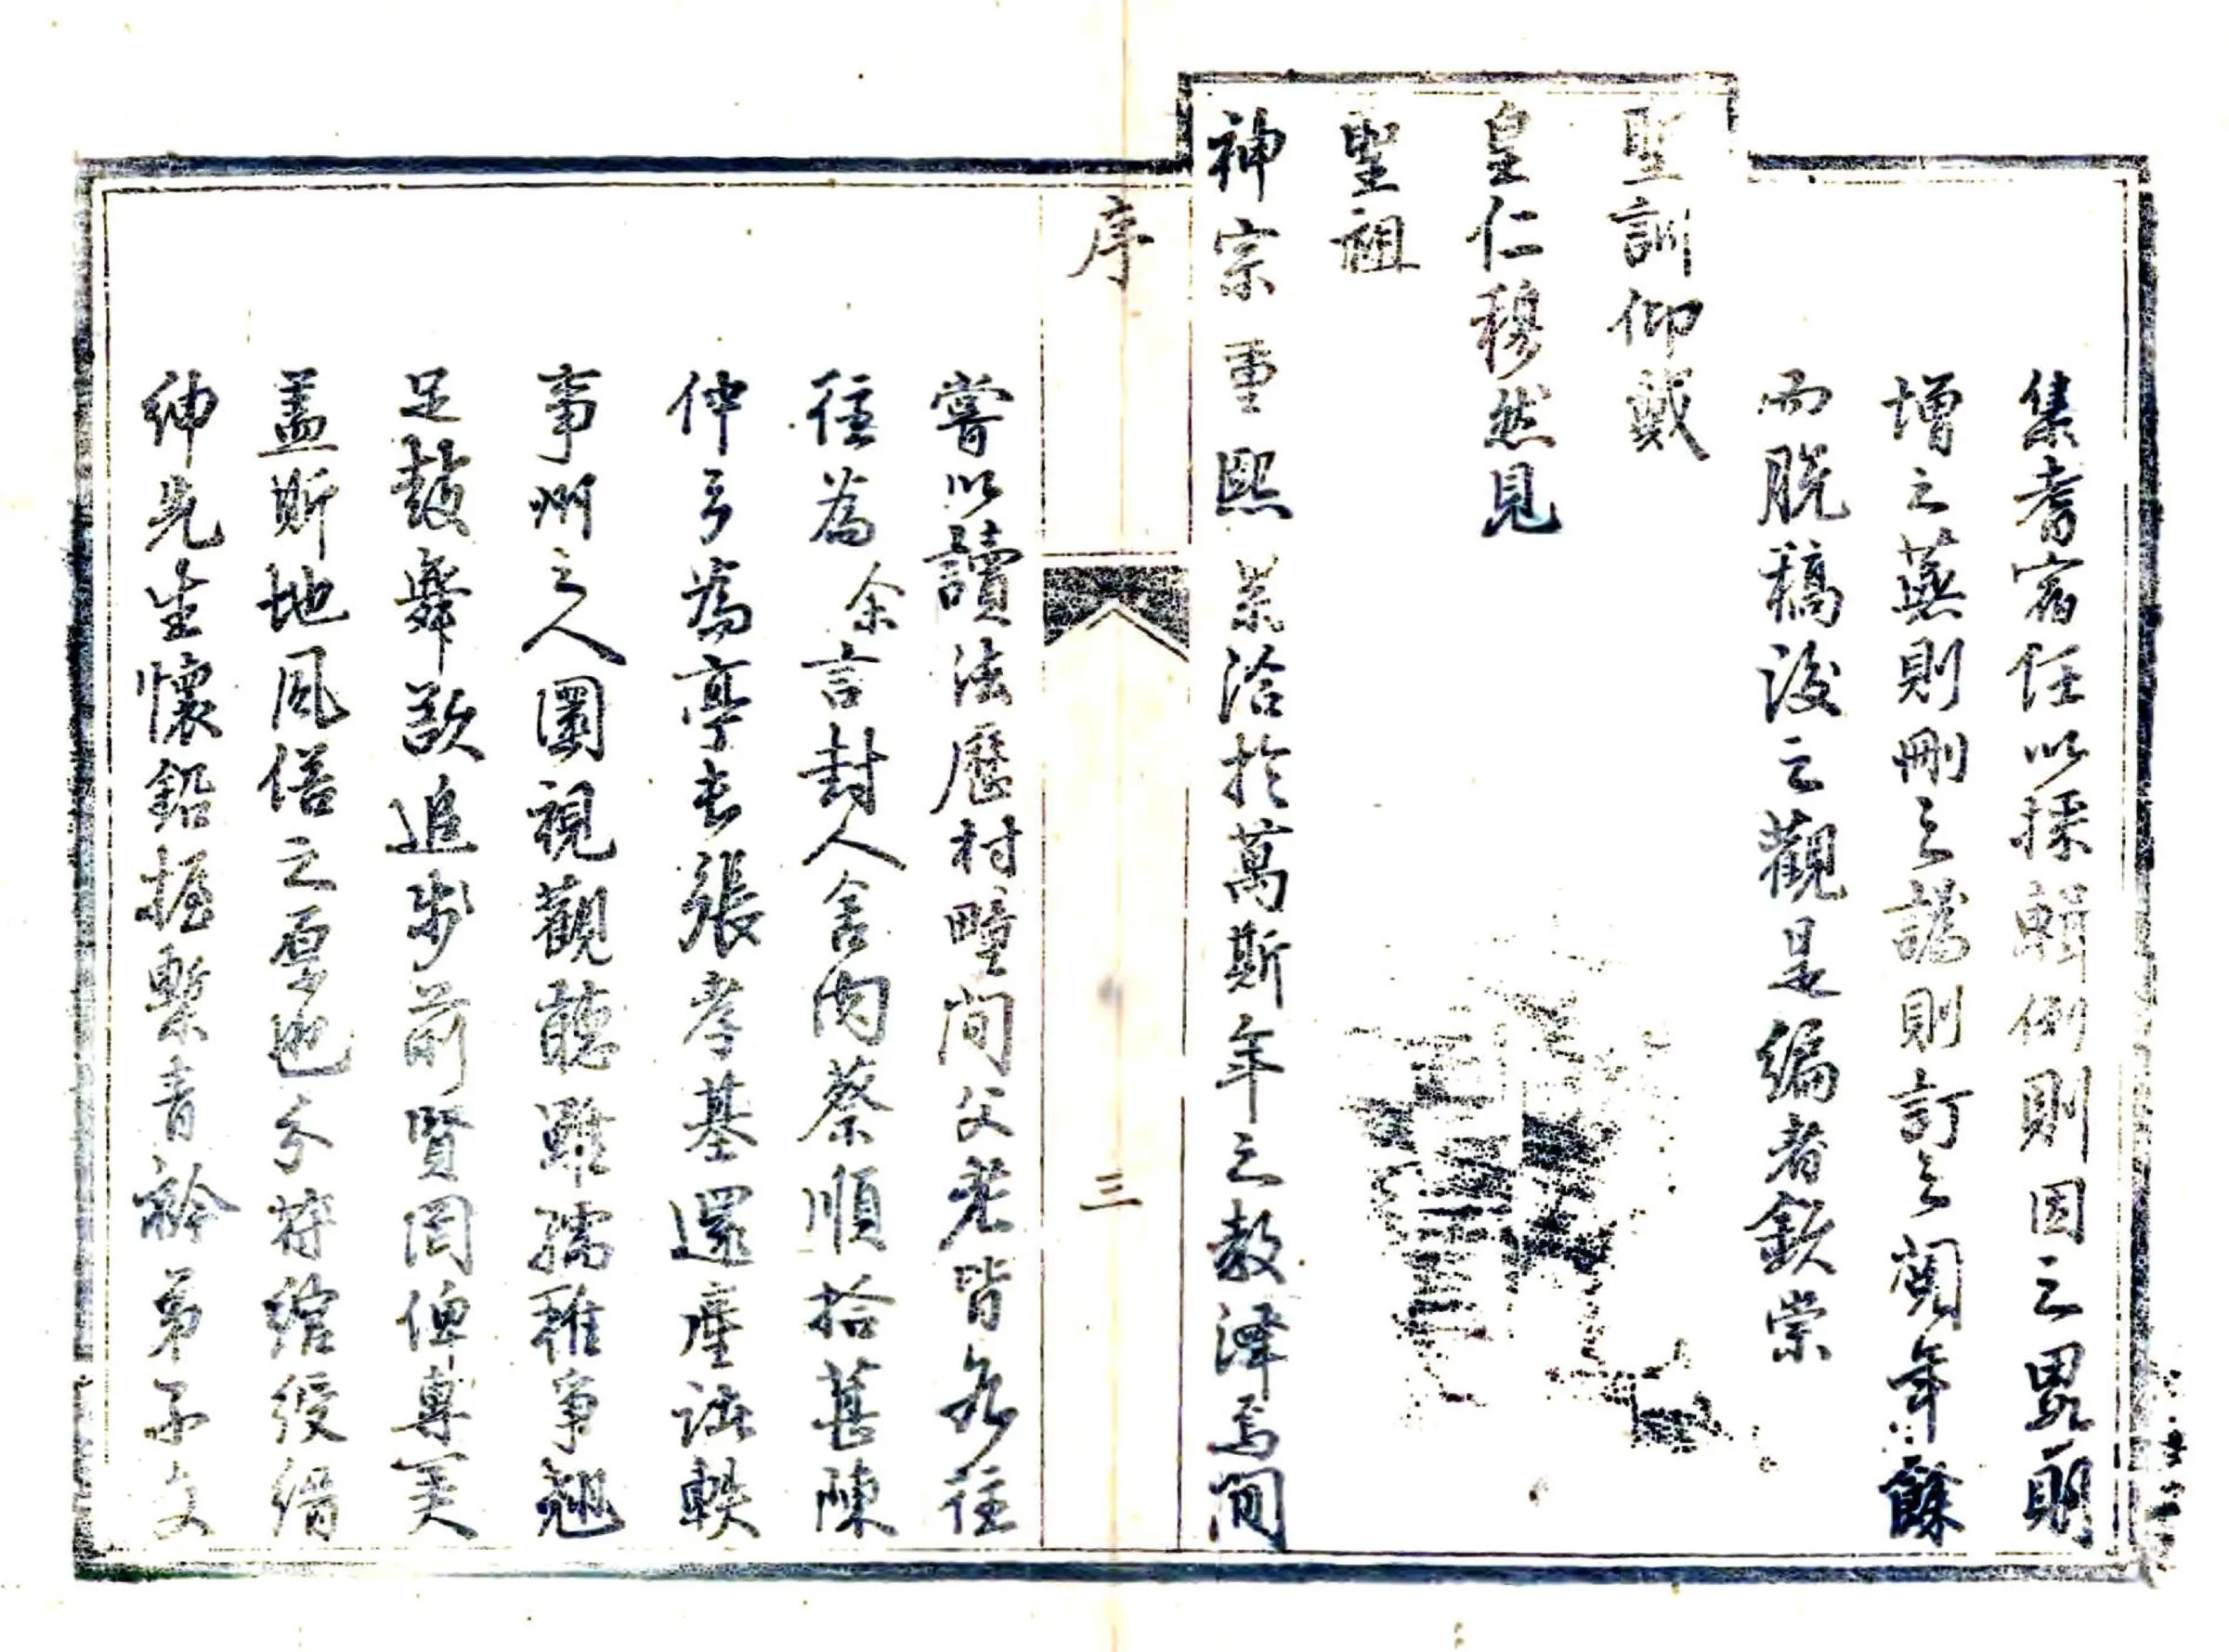 集耆宿任以採輯例則因之畧則
增之蕪則刪之譌則訂之閱年餘
而脫稿後之觀是編者欽崇
聖訓仰戴
皇仁穆然見
聖祖
神宗重熙累洽於萬斯年之教澤焉間
序
三
嘗以讀法歷村墅間父老皆為往
往為余言封人舍肉蔡順拾葚陳
仲弓為亭長張孝基還產諸軼
事州之人圜視觀聽雖孺稚事翹
足鼓舞歡追步前賢罔俾專美
蓋斯地風俗之厚也今符綰綬縉
紳先生懷鉛握槧青衿弟子文